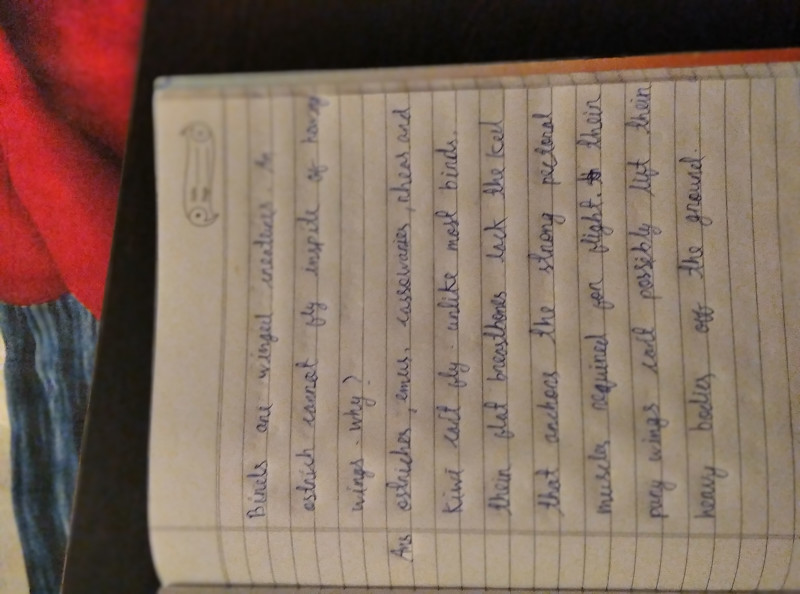 Birds are winged creatures to
ostrich cannot fly inspite of having
wings. why?
Ans ostriches, emus, cassowaries, rheas and
Kiwi can't fly. unlike most birds.
their flat breastbones lack the keel
that anchors the strong pectoral
muscles required for flight. their
puny wings can't possibly lift their
heavy bodies off the ground.